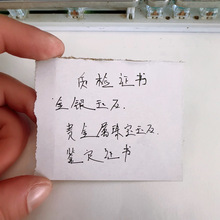 质检证书
金银玉石
贵金属珠宝玉石
鉴定证书